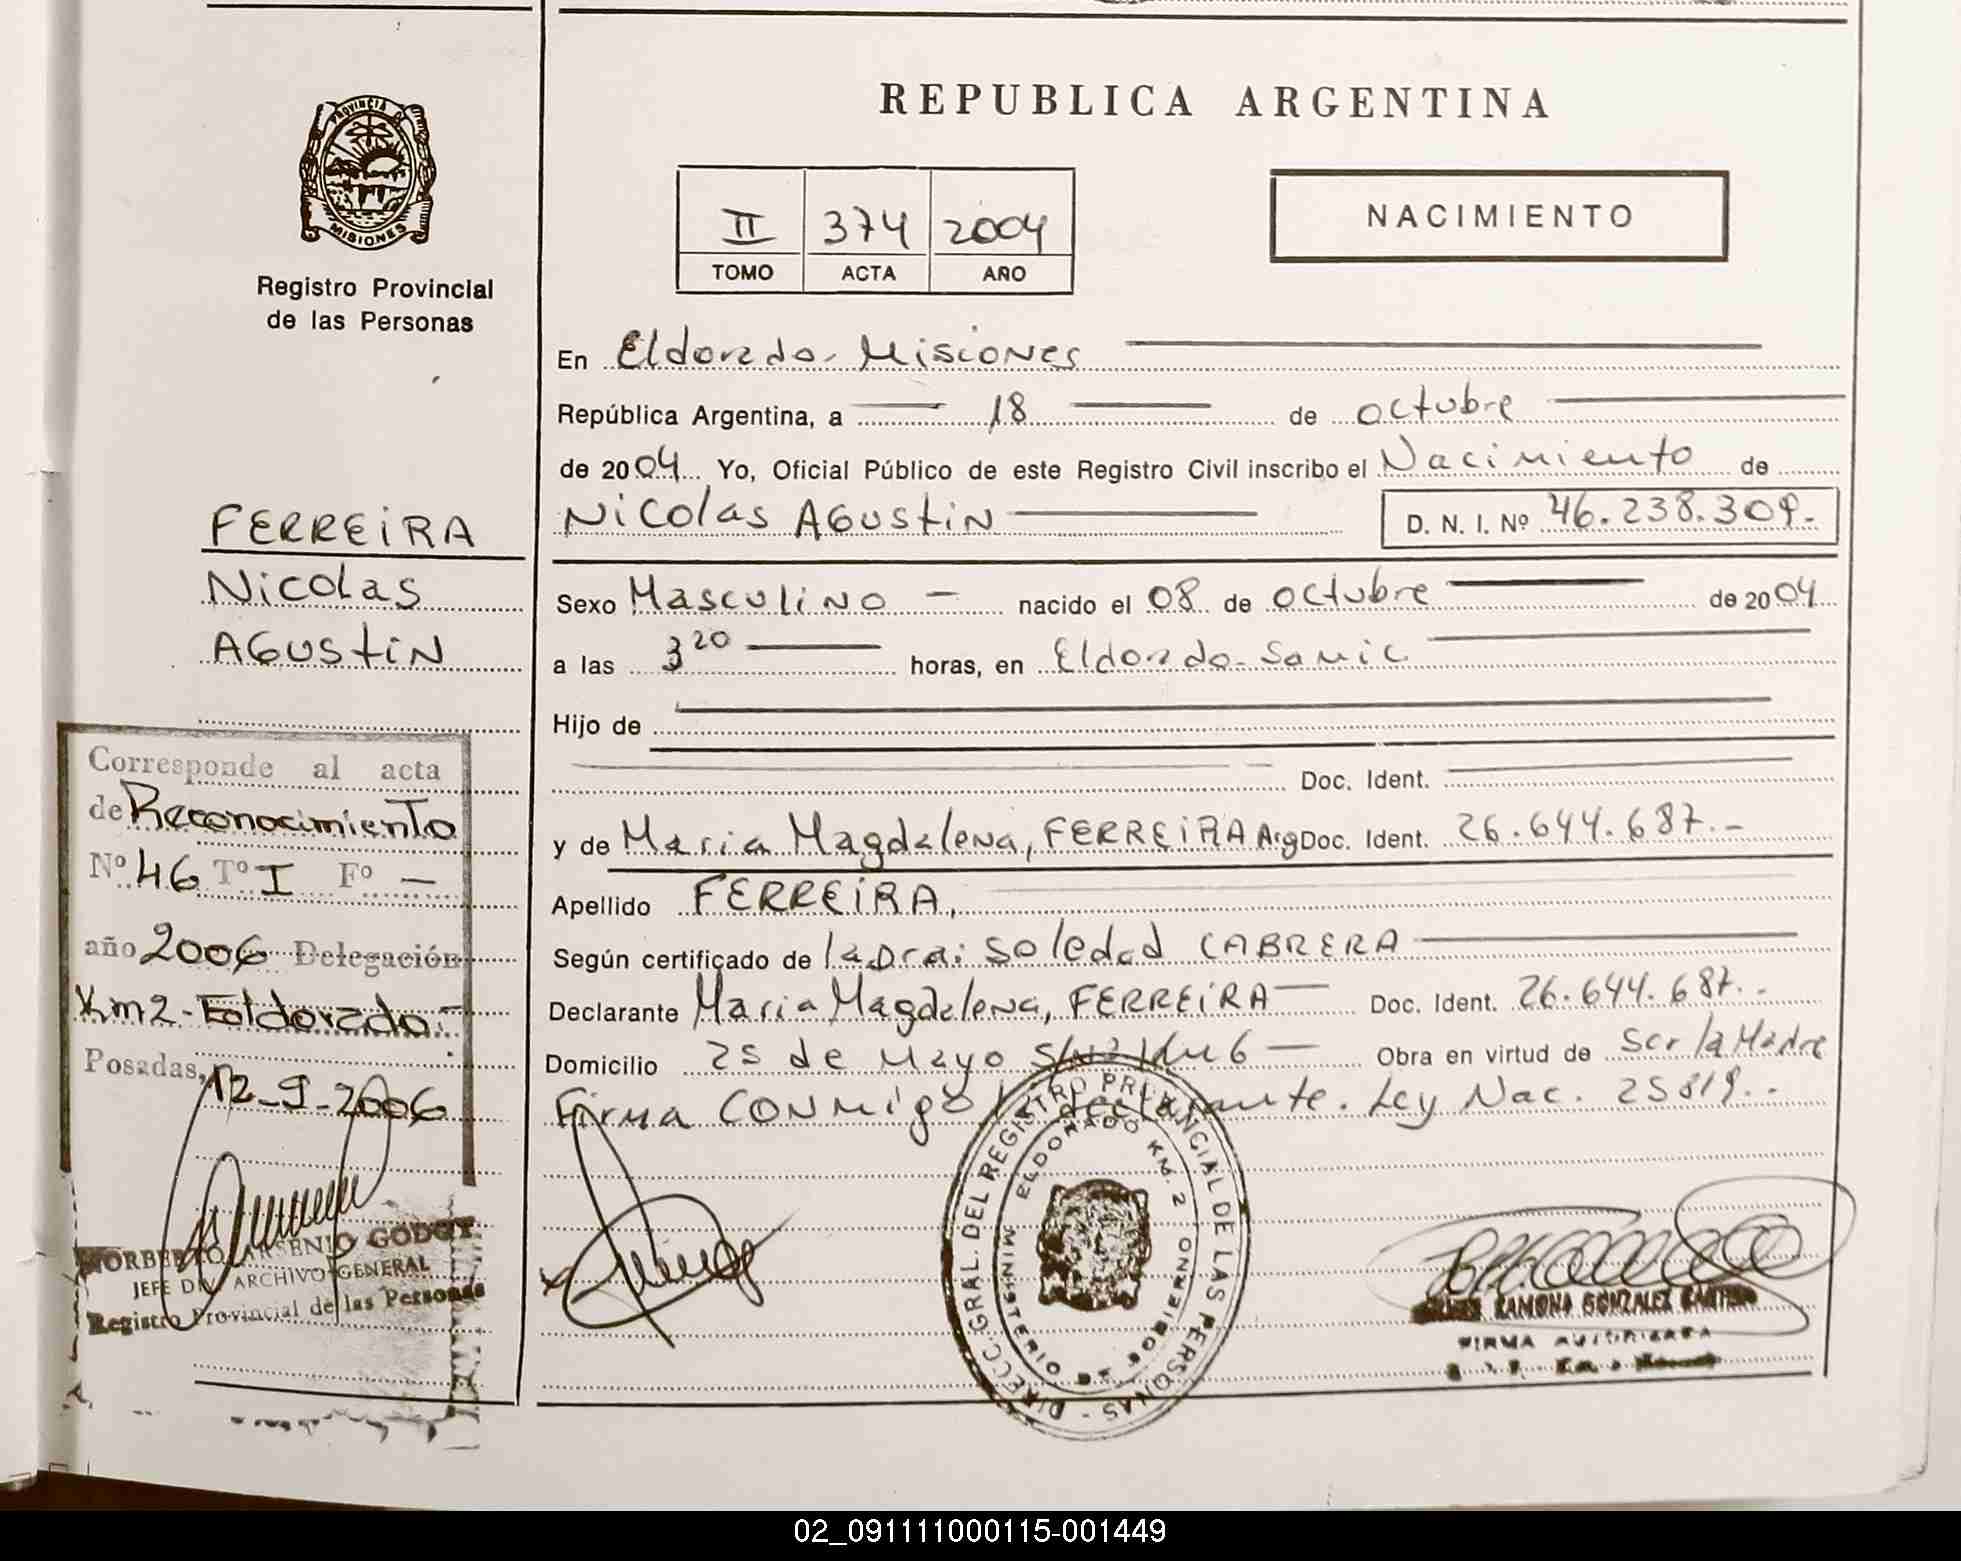 PROVINCIA DE
MISIONES
Registro Provincial
de las Personas
FERREIRA
Nicolas
Agustin
Corresponde al acta
de Reconocimiento
Nº 46 Tº I Fº —
año 2006 Delegación
Km2 - Eoldorado.-
Posadas, 12-9-2006
NORBERTO ARSENIO GODOY
JEFE DIV. ARCHIVO GENERAL
Registro Provincial de las Personas
REPUBLICA ARGENTINA
II 374 2004
TOMO ACTA AÑO
NACIMIENTO
En Eldorado - Misiones
República Argentina, a 18 de octubre
de 2004 Yo, Oficial Público de este Registro Civil inscribo el Nacimiento de
Nicolas Agustin D. N. I. Nº 46.238.309.-
Sexo Masculino - nacido el 08 de octubre de 2004
a las 3 20 horas, en Eldorado - Samic
Hijo de
Doc. Ident.
y de Maria Magdalena, FERREIRA Arg Doc. Ident. 26.644.687.-
Apellido FERREIRA,
Según certificado de la Dra: Soledad CABRERA
Declarante Maria Magdalena, FERREIRA Doc. Ident. 26.644.687.-
Domicilio 25 de Mayo S/Nº Km 6 Obra en virtud de ser la Madre
Firma conmigo declarante. Ley Nac. 25819.-
DIRECC. GRAL. DEL REGISTRO PROVINCIAL DE LAS PERSONAS -
MINISTERIO DE GOBIERNO
ELDORADO KM. 2
RAMONA GONZALEZ
FIRMA AUTORIZADA
02_091111000115-001449